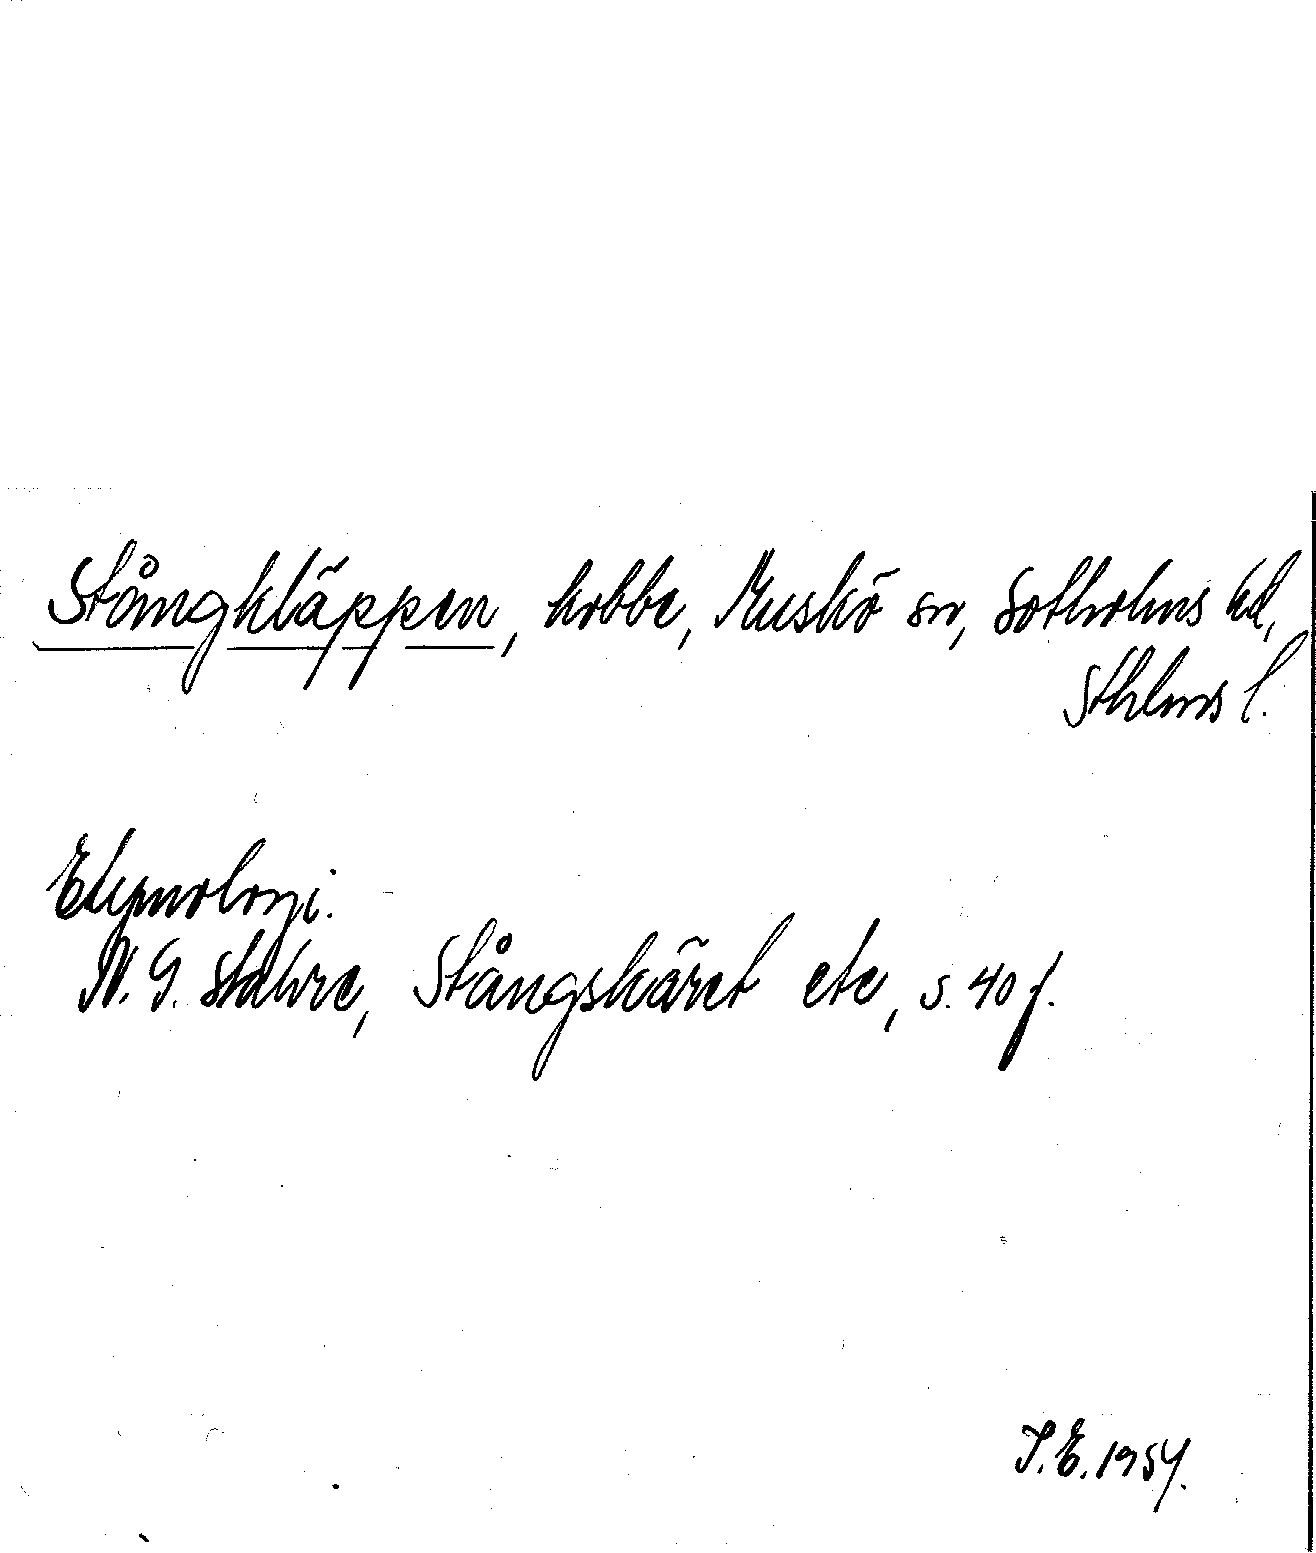 Stångkläppen, kobbe, Muskö sn, Sotholms hd,
Sthlms l.
Etymologi.
N. G. Stahre, Stångskäret etc, s. 40 f.
I.E. 1954.